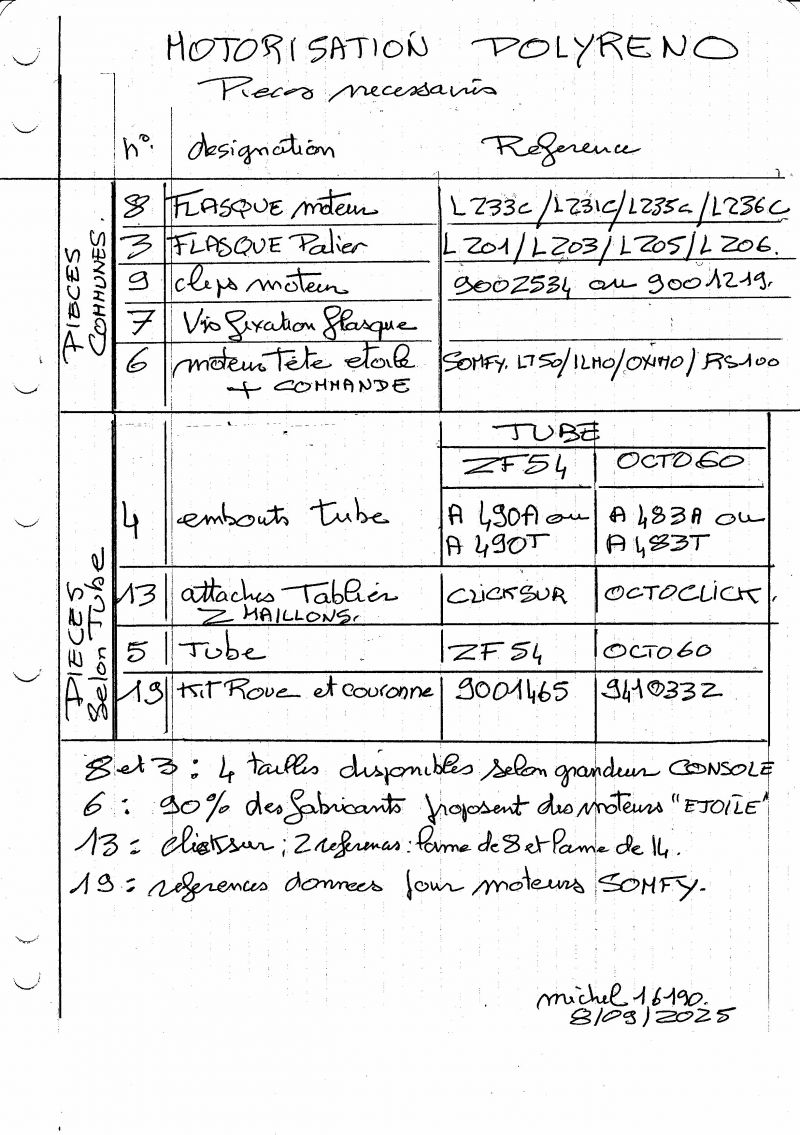 MOTORISATION POLYRENO
Pieces necessaires
n°. designation Reference
PIECES COMMUNES.
8 FLASQUE moteur LZ33C/LZ31C/LZ35C/LZ36C
3 FLASQUE Palier LZ01/LZ03/LZ05/LZ06.
9 clips moteur 9002534 ou 9001219.
7 Vis fixation flasque
6 moteur Tête etoile SOMFY. LT50/ILMO/OXIMO/RS100
+ COMMANDE
PIECES Selon Tube
TUBE
ZF54 OCTO60
4 embouts tube A 490A ou A 483A ou
A 490T A 483T
13 attaches Tablier CLICKSUR OCTOCLICK.
2 MAILLONS.
5 Tube ZF54 OCTO60
19 KIT Roue et couronne 9001465 9410332
8 et 3 : 4 tailles disponibles selon grandeur CONSOLE
6 : 90% des fabricants proposent des moteurs "ETOILE"
13 = clicksur ; 2 references : lame de 8 et lame de 14.
19 = references donnees pour moteurs SOMFY.
michel 16190.
8/09/2025